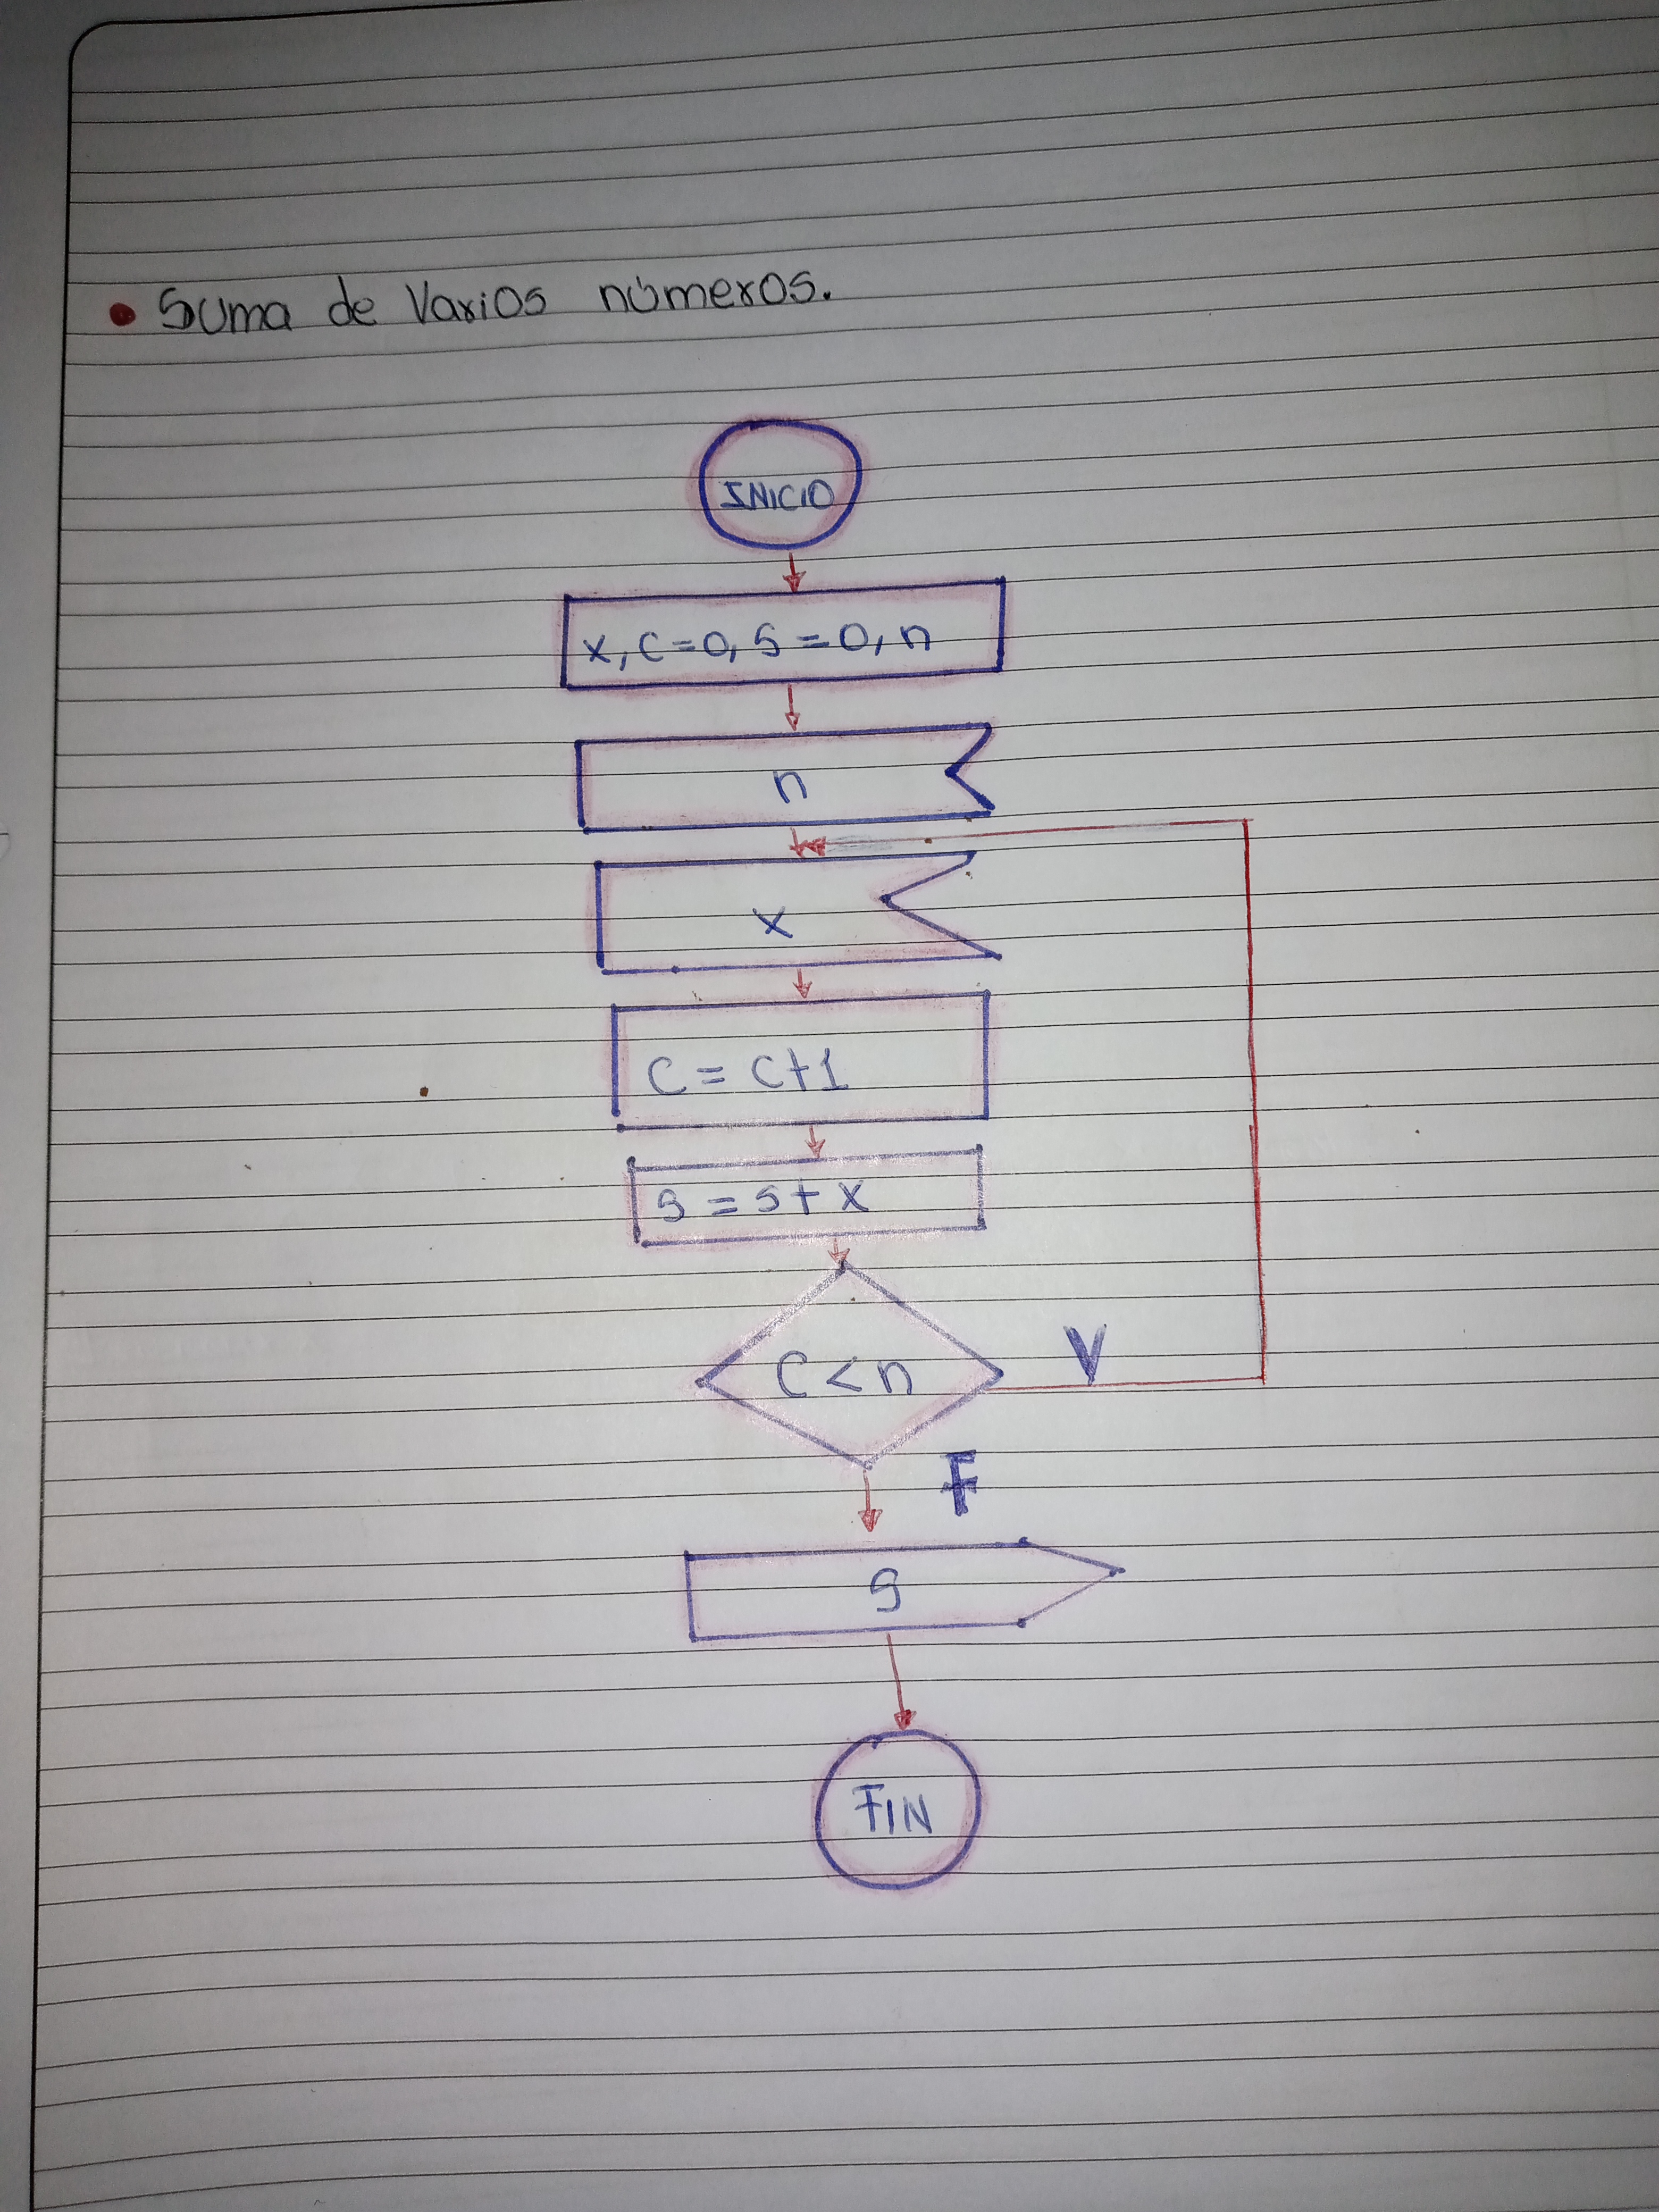 Suma de Varios números.
INICIO
x, c=0, s=0, n
n
x
c = c+1
s = s + x
c < n
V
F
s
FIN